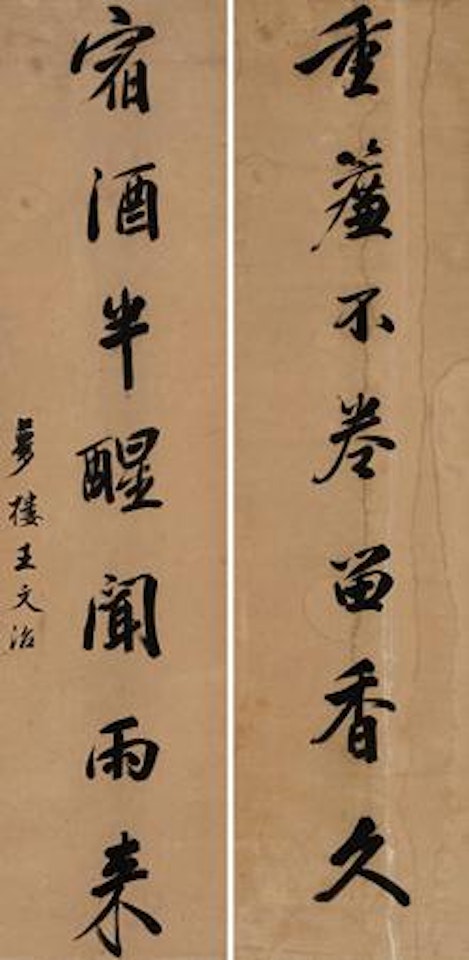 重簾不卷留香久
宿酒半醒聞雨来
夢樓王文治